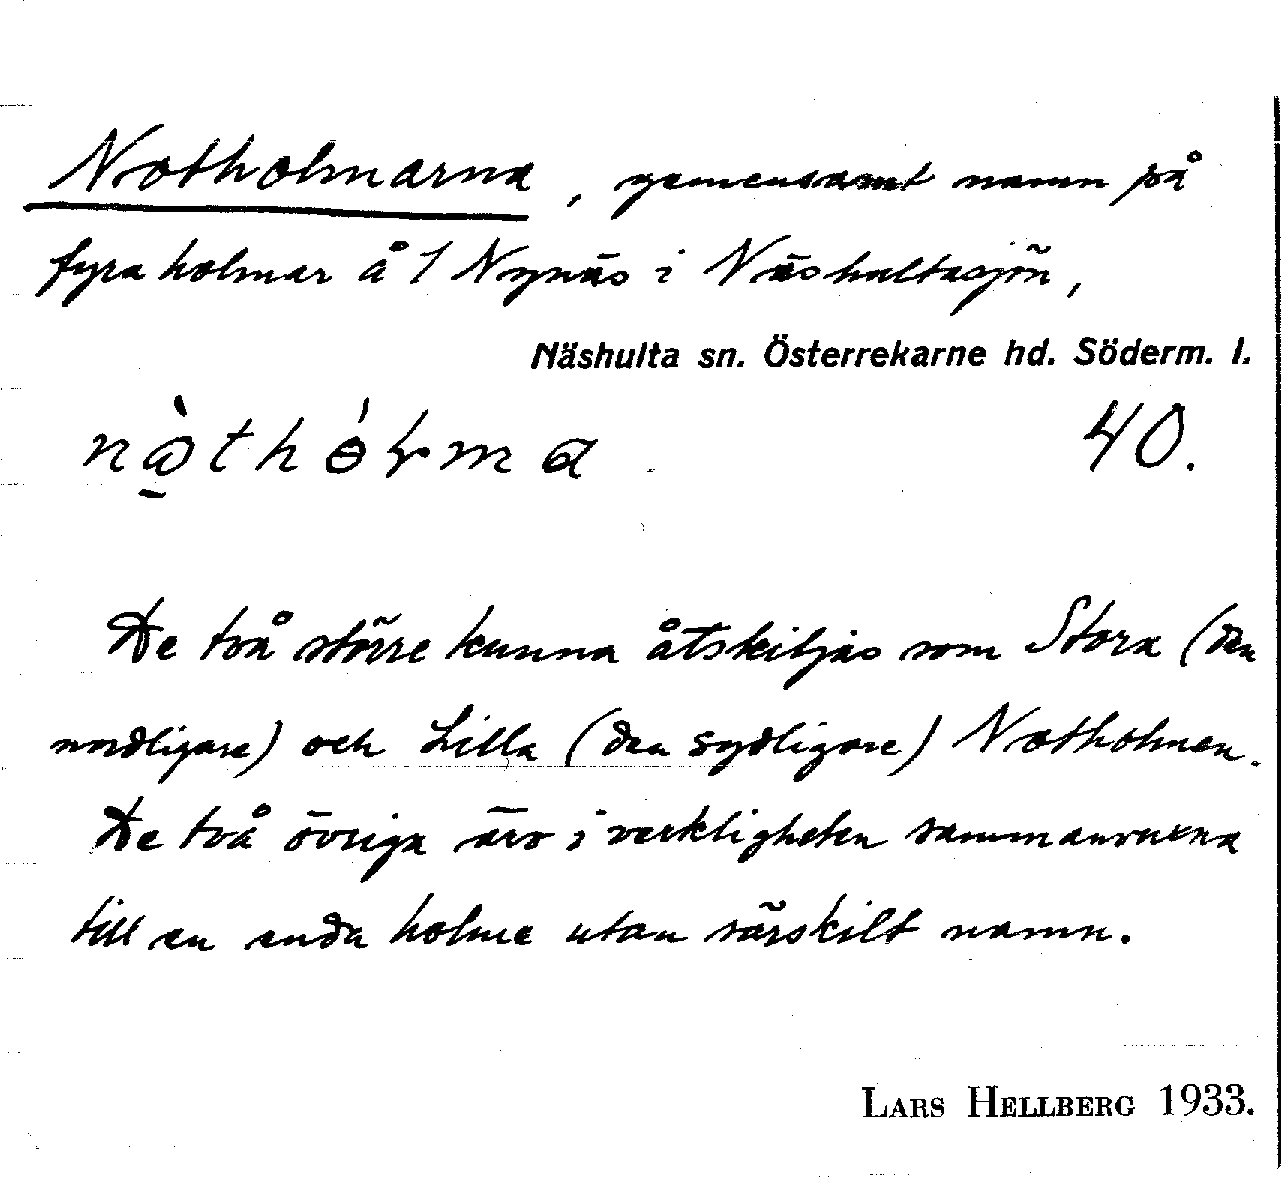 Notholmarna, gemensamt namn på
fyra holmar å 1 Nynäs i Näshultasjön,
Näshulta sn. Österrekarne hd. Söderm. l.
40.
De två större kunna åtskiljas som Stora (den
nordligare) och Lilla (den sydligare) Notholmen.
De två övriga äro i verkligheten sammanvuxna
till en enda holme utan särskilt namn.
LARS HELLBERG 1933.